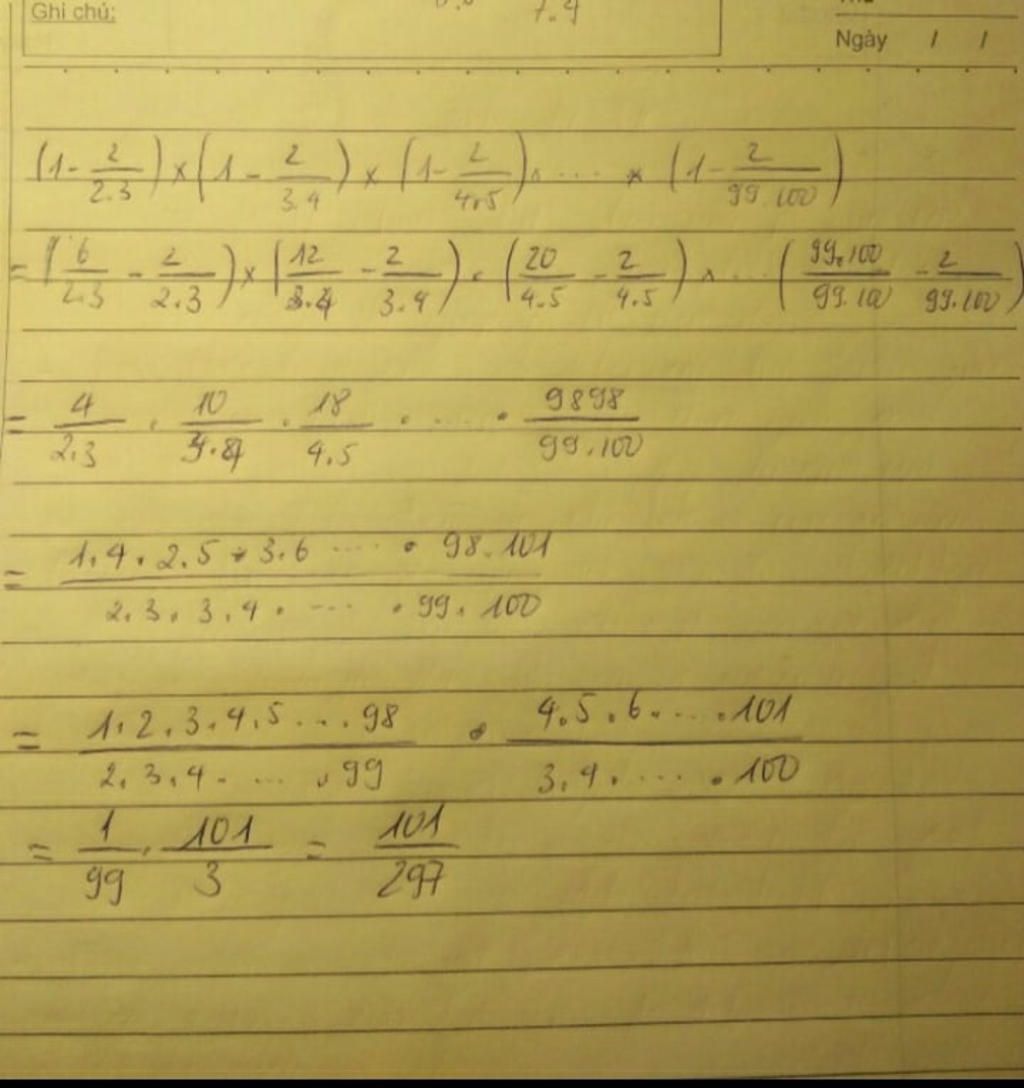 Ghi chú:
7.4
Ngày / /
(1 - 2/2.3) × (1 - 2/3.4) × (1 - 2/4.5) × .... × (1 - 2/99.100)
= (6/2.3 - 2/2.3) × (12/3.4 - 2/3.4) . (20/4.5 - 2/4.5) × ... (99.100/99.100 - 2/99.100)
= 4/2.3 . 10/3.4 . 18/4.5 . .... . 9898/99.100
= 1.4.2.5.3.6 .... . 98.101 / 2.3.3.4. .... . 99.100
= 1.2.3.4.5...98 / 2.3.4. .... .99 . 4.5.6.....101 / 3.4. .... .100
= 1/99 . 101/3 = 101/297